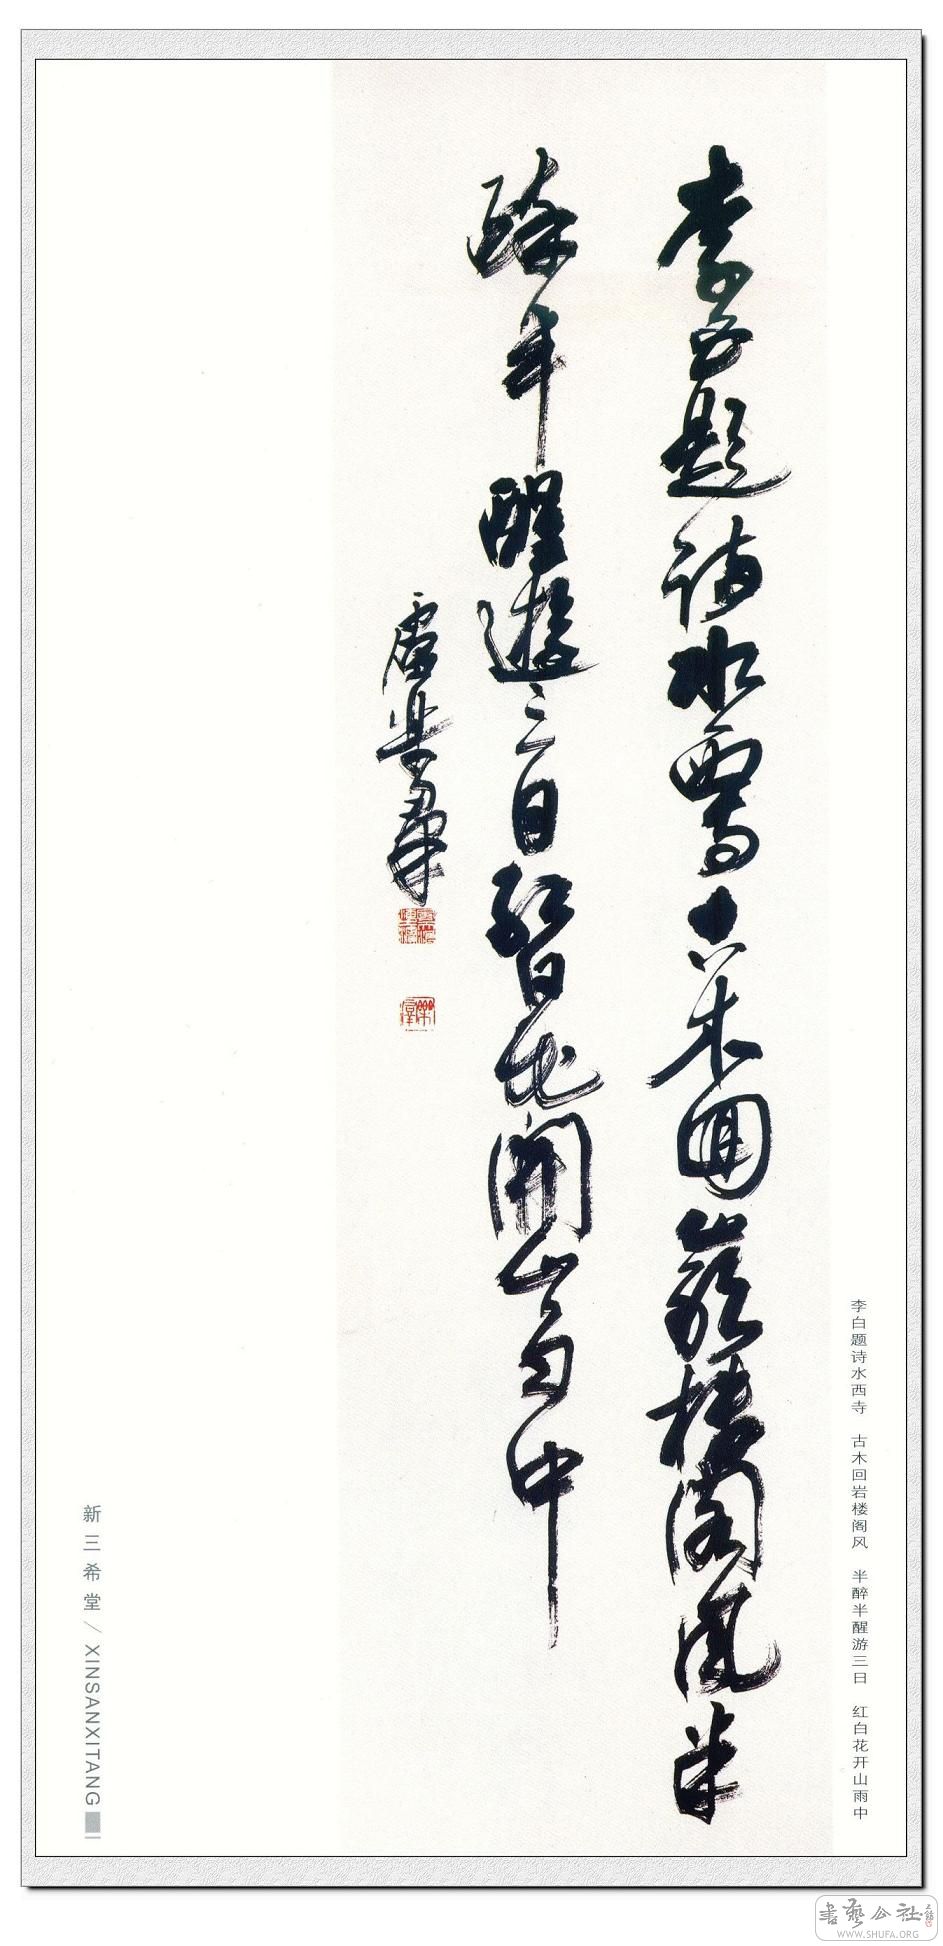 李白題詩水西寺古木回巖樓閣風半
醉半醒遊三日紅白花開山雨中
李白题诗水西寺 古木回岩楼阁风 半醉半醒游三日 红白花开山雨中
新三希堂／XINSANXITANG
書藝公社
WWW.SHUFA.ORG